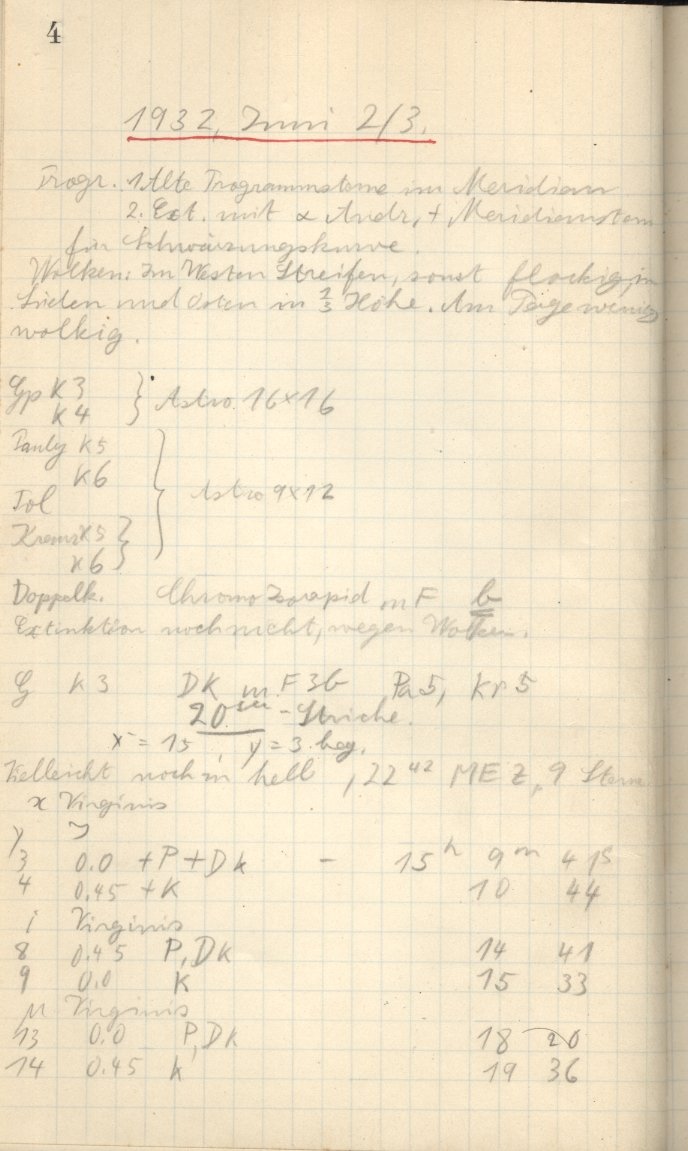 4
1932, Juni 2/3.
Progr. 1. Alte Programmsterne im Meridian
2. Ext. mit α Andr, + Meridianstern
für Schwärzungskurve.
Wolken: Im Westen Streifen, sonst flockig, im
Süden und Osten in 2/3 Höhe. Am Tage wenig
wolkig.
Gp K3 } Astro 16×16
K4
Pauly K5
K6
Tol } Astro 9×12
Krems K5 }
K6
Doppelk. Chromo Isorapid m F b
Extinktion noch nicht, wegen Wolken.
G K3 DK m. F 3b Pa5, Kr5
20 sec - Striche.
x = 15, y = 3 beg.
Vielleicht noch zu hell, 22 42 MEZ, 9 Sterne
κ Virginis
y
3 0.0 + P + Dk - 15h 9m 41s
4 0.45 + K 10 44
i Virginis
8 0.45 P, Dk 14 41
9 0.0 K 15 33
μ Virginis
13 0.0 P, Dk 18 20
14 0.45 K 19 36